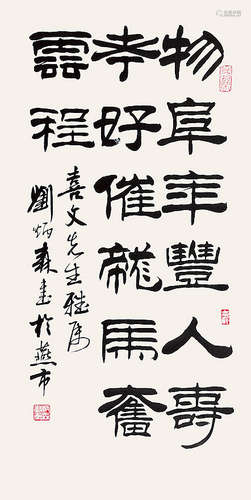 物阜年豐人壽
孝好催龍馬奮
雲程
喜文先生雅属
劉炳森書於燕市